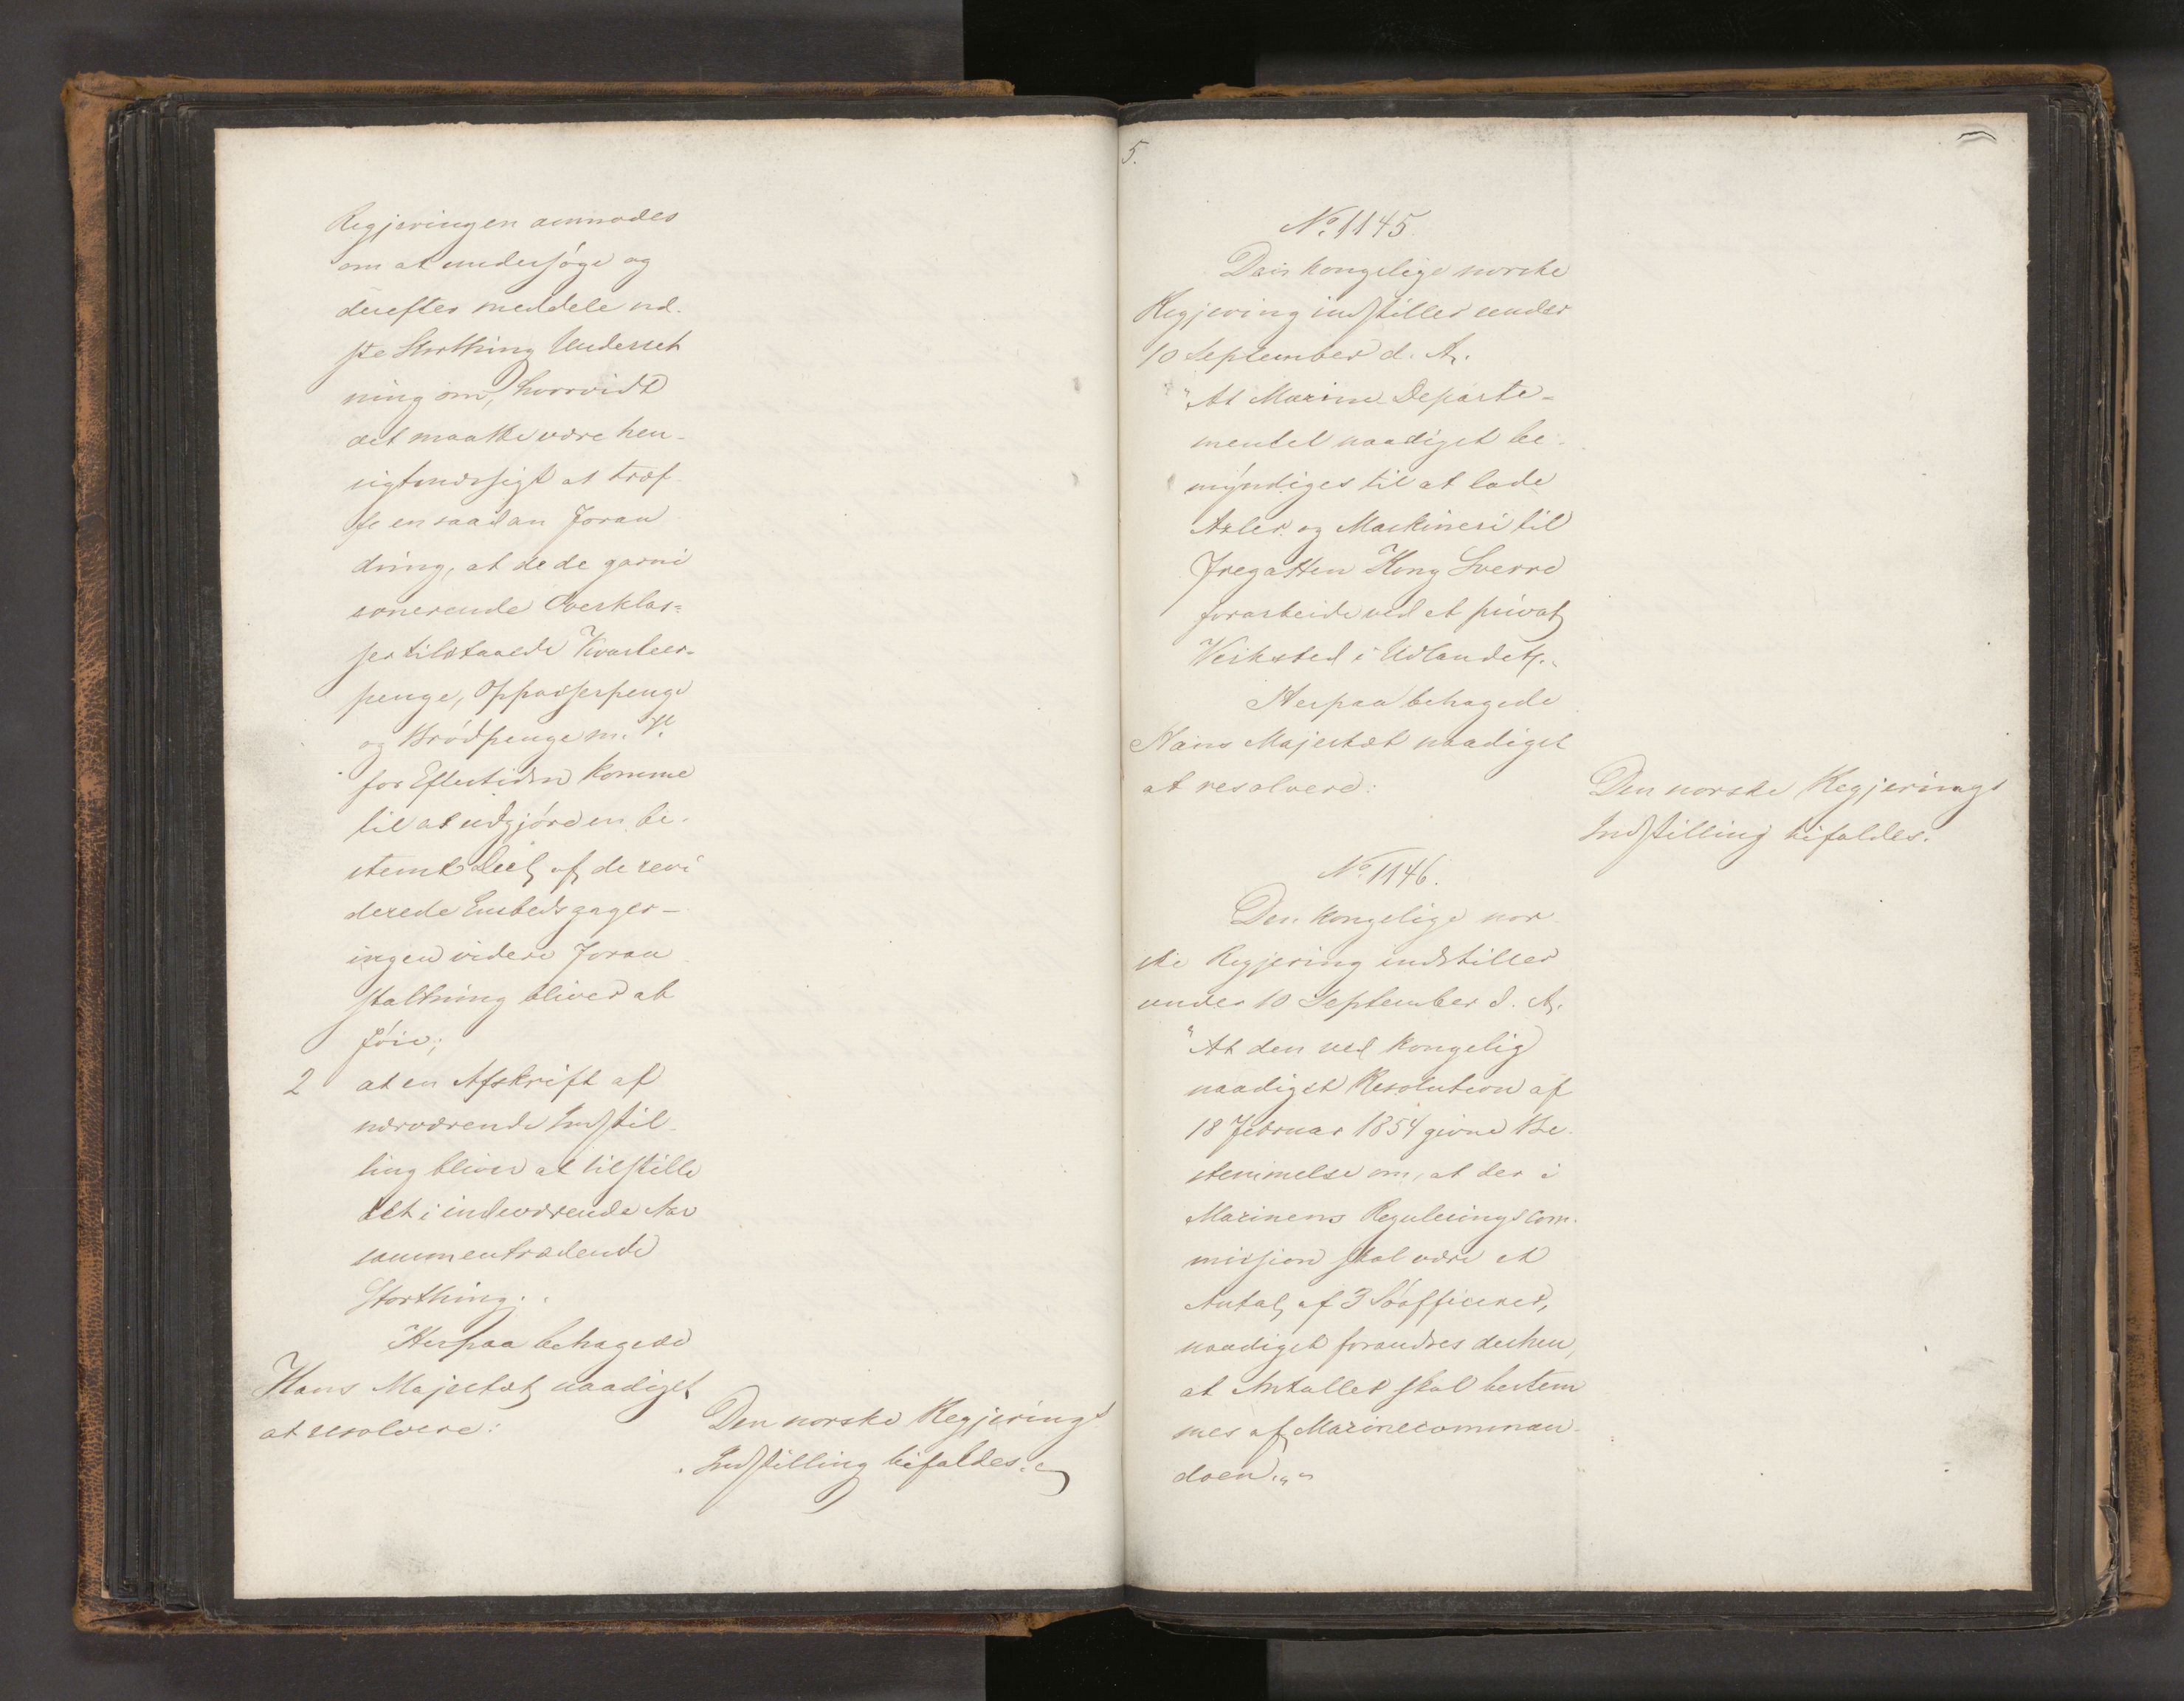 Regjeringen anmodes
om at undersøge og
derefter meddele næ-
ste Storthing Underret
ning om, hvorvidt
det maatte være hen-
sigtmæssigt at træf
fe en saadan Foran
dring, at de de garni
sonerende Overklas-
ser tilstaaede Kvarteer-
penge, Oppasserpenge
og Brødpenge m. V.
for Eftertiden komme
til at udgjøre en be-
stemt Deel af de revi
derede Embedsgager –
ingen videre Foran
staltning bliver at
føie;
2 at en Afskrift af
nærværende Indstil-
ling bliver at tilstille
det i indeværende Aar
sammentrædende
Storthing."
Herpaa behagede
Hans Majestæt naadigst
at resolvere:
Den norske Regjerings
Indstilling bifaldes.
5.
No. 1145
Den kongelige norske
Regjering indstiller under
10 September d. A.
"At Marine-Departe-
mentet naadigst be-
myndiges til at lade
Axler og Maskineri til
Fregatten Kong Sverre
forarbeide ved et privat
Verksted i Udlandet."
Herpaa behagede
Hans Majestæt naadigst
at resolvere:
Den norske Regjerings
Indstilling bifaldes.
No 1146.
Den kongelige nor-
ske Regjering indstiller
under 10 September d. A.
"At den ved kongelig
naadigst Resolution af
18 Februar 1854 givne Be-
stemmelse om, at der i
Marinens Reguleringscom-
mission skal være et
Antal af 3 Søofficerer,
naadigst forandres derhen,
at Antallet skal bestem
mes af Marinecomman-
doen."